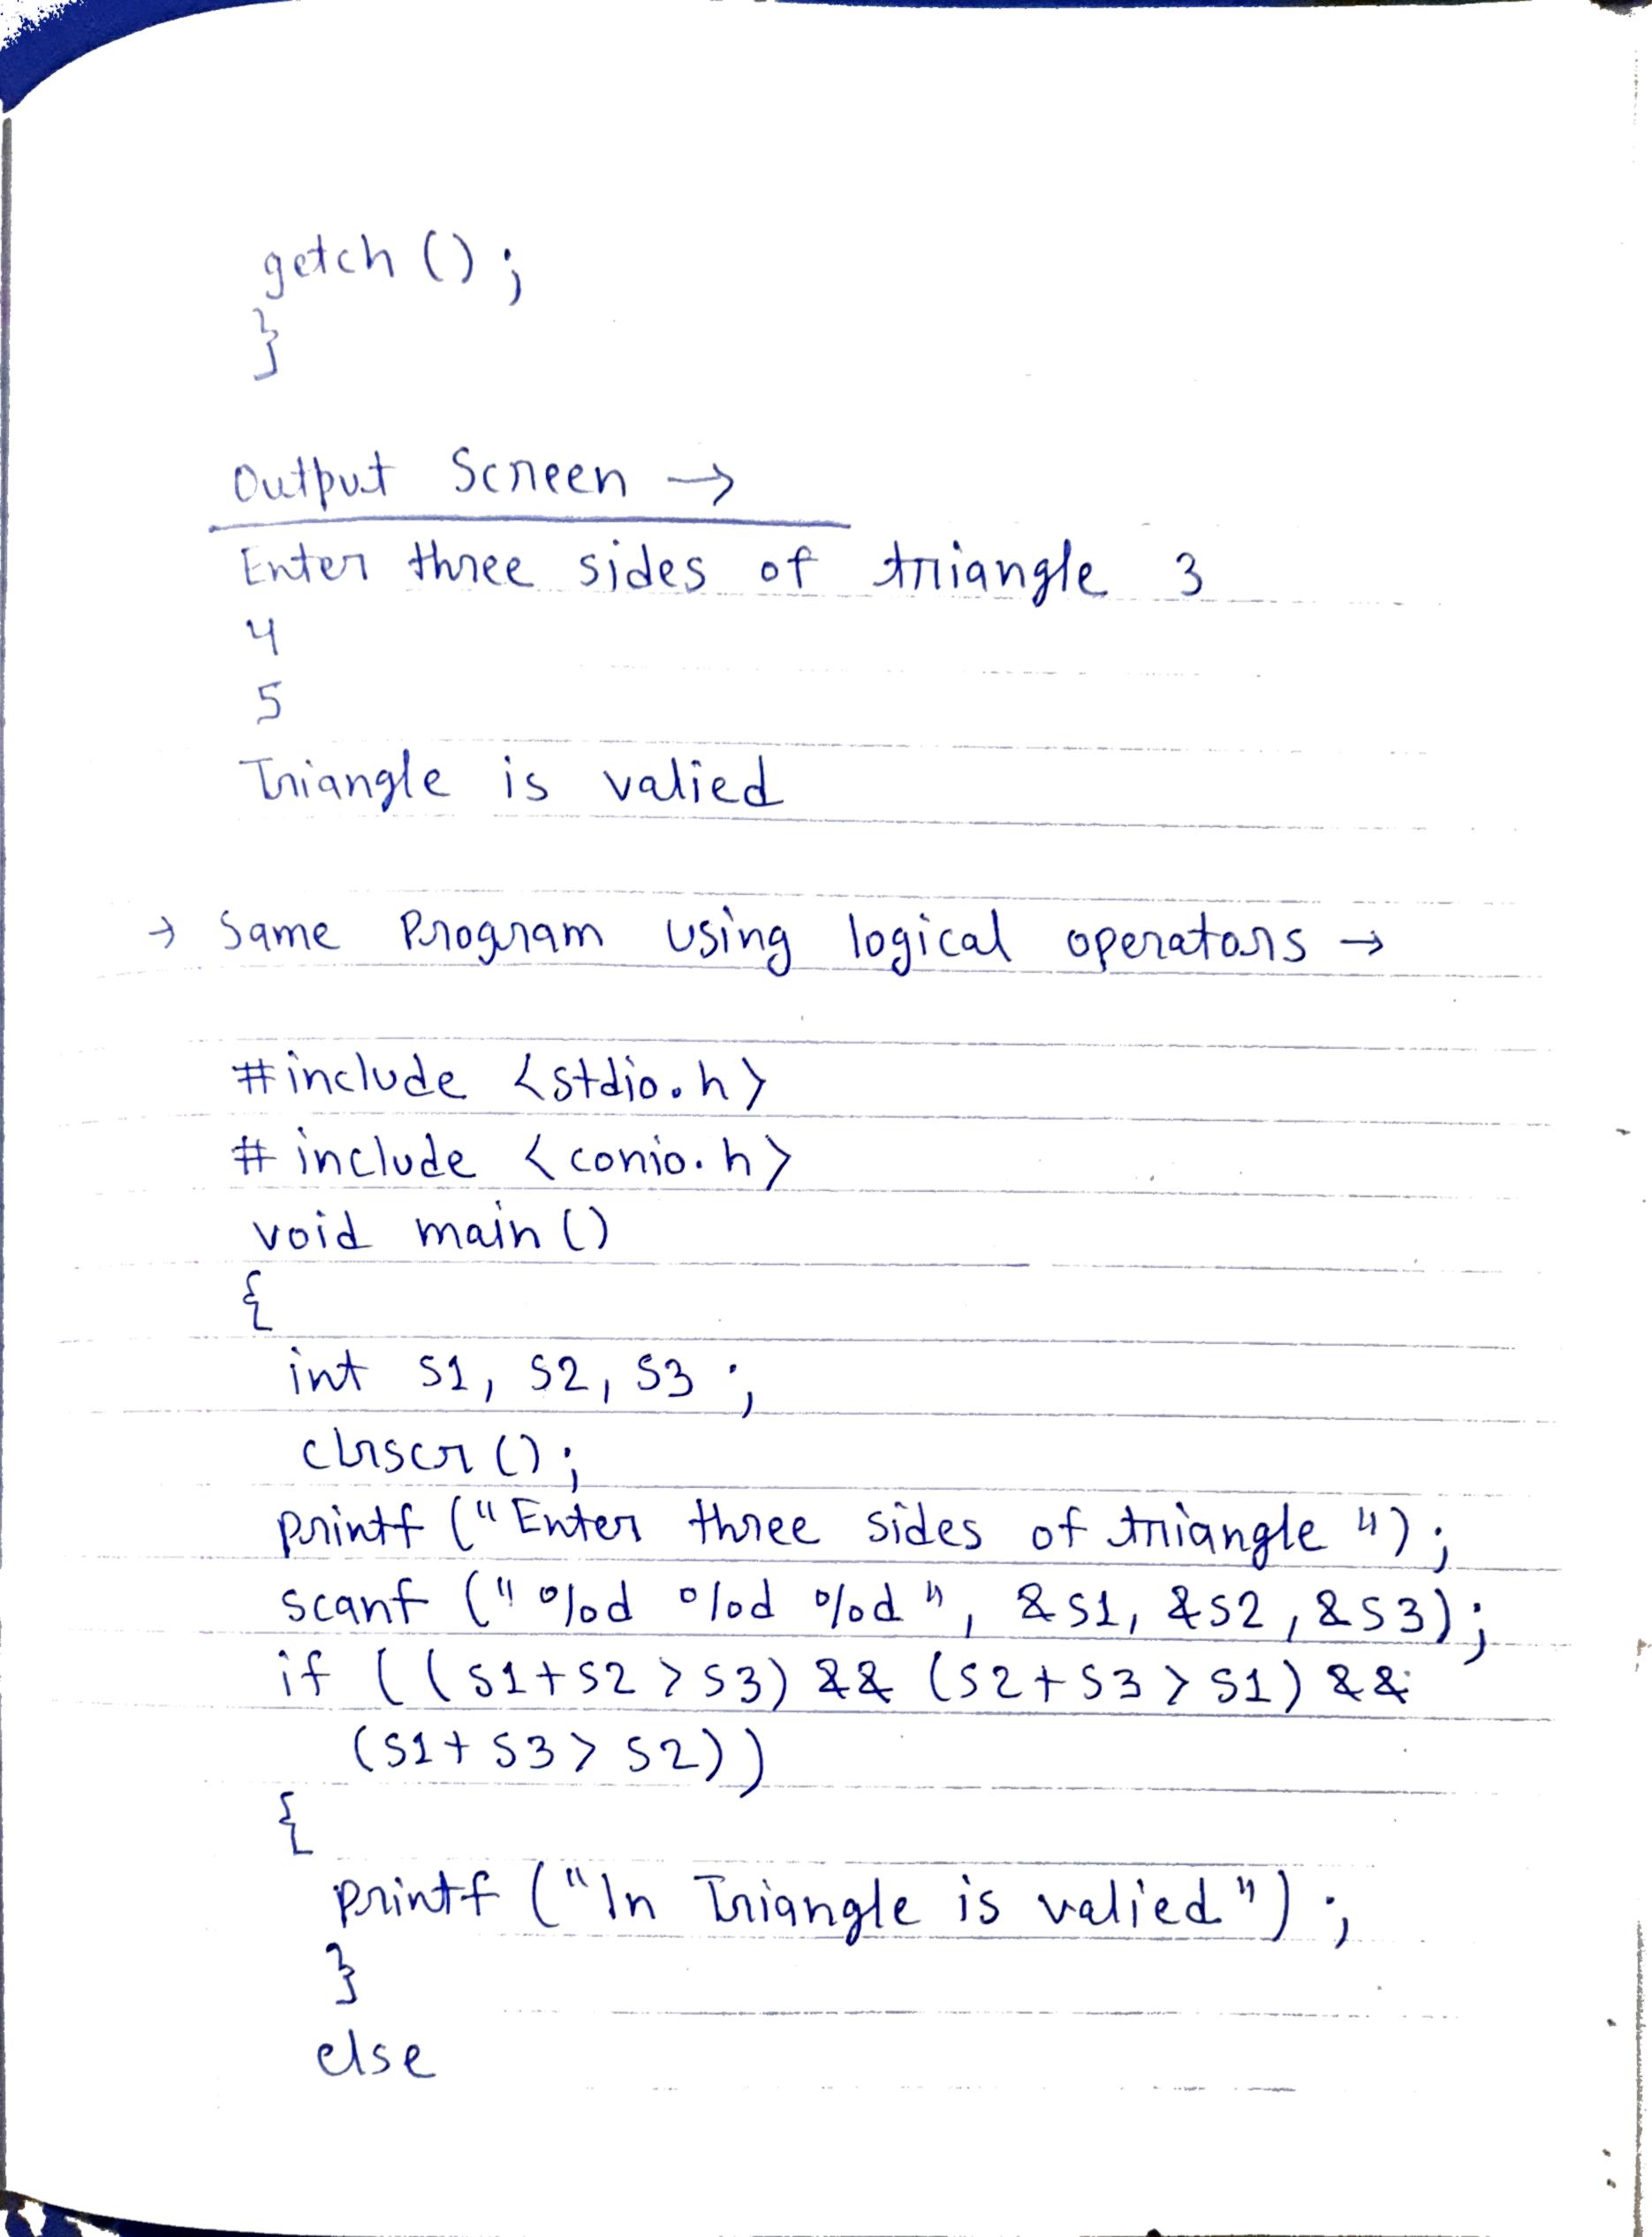 getch ();
}
Output Screen →
Enter three sides of triangle 3
4
5
Triangle is valied
→ Same Program using logical operators →
#include <stdio.h>
# include <conio.h>
void main ()
{
int s1, s2, s3 ;
clrscr ();
printf ("Enter three sides of triangle ");
scanf ("%d %d %d", &s1, &s2, &s3);
if ((s1+s2 > s3) && (s2+s3 > s1) &&
(s1+s3 > s2))
{
printf ("\n Triangle is valied");
}
else